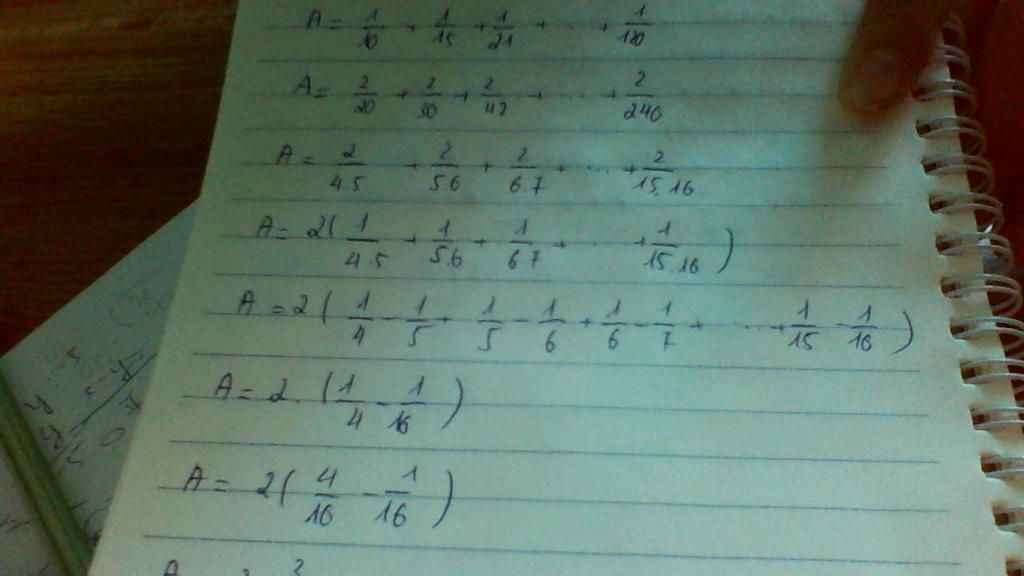 A = 1/10 + 1/15 + 1/21 + ... + 1/120
A = 2/20 + 2/30 + 2/42 + ... + 2/240
A = 2/4.5 + 2/5.6 + 2/6.7 + ... + 2/15.16
A = 2( 1/4.5 + 1/5.6 + 1/6.7 + ... + 1/15.16 )
A = 2 ( 1/4 - 1/5 + 1/5 - 1/6 + 1/6 - 1/7 + ... + 1/15 - 1/16 )
A = 2 . ( 1/4 - 1/16 )
A = 2 ( 4/16 - 1/16 )